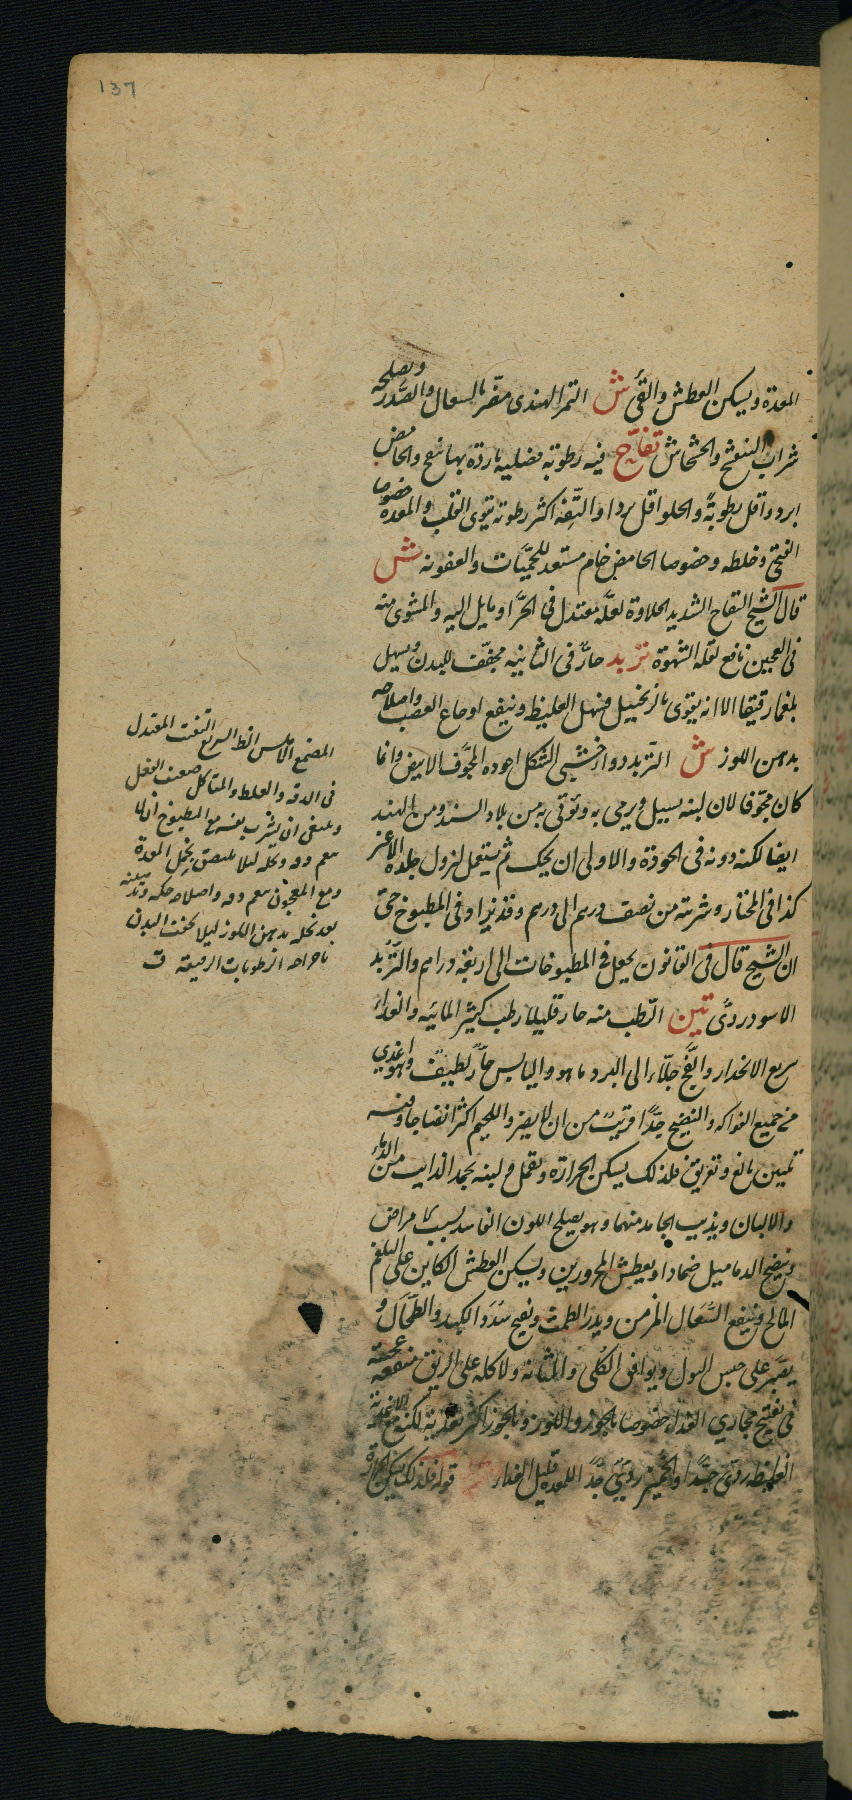 137
المعدة ويسكن العطش والقئ ش التمر الهندى مضر بالسعال والصدر ويصلحه
شراب البنفسج والخشخاش تفاح فيه رطوبة فضلية باردة بها نفح والحامض
ابرد واقل رطوبةً والحلو اقل بردا والتفه اكثر رطوبة يقوى القلب والمعدة خصوصا
الفتحى وخلطه وخصوصا الحامض خام مستعد للحميّات والعفونه ش
قال الشيخ التفاح الشديد الحلاوة لعله معتدل فى الحرّ او مايل اليه والمشوى منه
فى العجين نافع لقله الشهوة تربد حارّ فى الثانيه مجفّف للبدن ويسهل
بلغما رقيقا الا انه يقوى بالزنجبيل فيسهل الغليظ وينفع اوجاع العصب واصلاحه
بدهن اللوز ش التربد دواء خشبى الشكل اجوده المجوّف الابيض وانما
كان مجوّفا لان لبنه يسيل ويرمى به ويؤتى به من بلاد السند ومن الهند
ايضا لكنه دونه فى الجودة والاولى ان يحك ثم يستعمل لزول جلده الاغبر
كذا فى المختار وشربته من نصف درهم الى درهم وقد يزاد فى المطبوخ حتى
ان الشيخ قال فى القانون يجعل فى المطبوخات الى اربعة دراهم والتّربد
الاسود ردئ تين الرّطب منه حار قليلا رطب كثير المائيه والغذاء
سريع الانحدار والفجّ جلّاء الى البرد ما هو واليابس حارّ لطيف وهو اغذى
من جميع الفواكه والنضيج جدًّا قريب من ان لا يضر واللحيم اكثر انضاجا وفيه
تليين بالغ وتعريق فلذلك يسكن الحرارة ويقمل ولبنه يجمد الذايب من الدماء
والالبان ويذيب الجامد منهما وهو يصلح اللون الفاسد بسبب الامراض
وينضج الدماميل ضمادا ويعطش المحرورين ويسكن العطش الكاين على البلغم
المالح وينفع السّعال المزمن ويدر الطمث ويفتح سدد الكبد والطّحال و
يعين على حبس البول ويوافق الكُلى والمثانه ولاكله على الريق منفعة عجيبة
فى تفتيح مجارى الغذاء خصوصا بالجوز واللوز وبالجوز اكثر تغذية لكنه مع الاغذية
الغليظه ردئ جدًّا والجميز ردئ جدًّا للمعدة قليل الغذاء قوله فلذلك يسكن الحرارة
المصمغ الاملس انط السريع التفتت المعتدل
فى الدقه والغلظ والمتآكل ضعيف الفعل
وينبغى ان يشرب بنفسه مع المطبوخ ان لا
ينعم دقه ونخله ليلا يلتصق بخمل المعدة
ومع المعجون ينعم دقه واصلاحه حكه وتدسينه
بعد نخله بدهن اللوز ليلا يجفف البدن
باخراجه الرطوبات الرقيقه ق